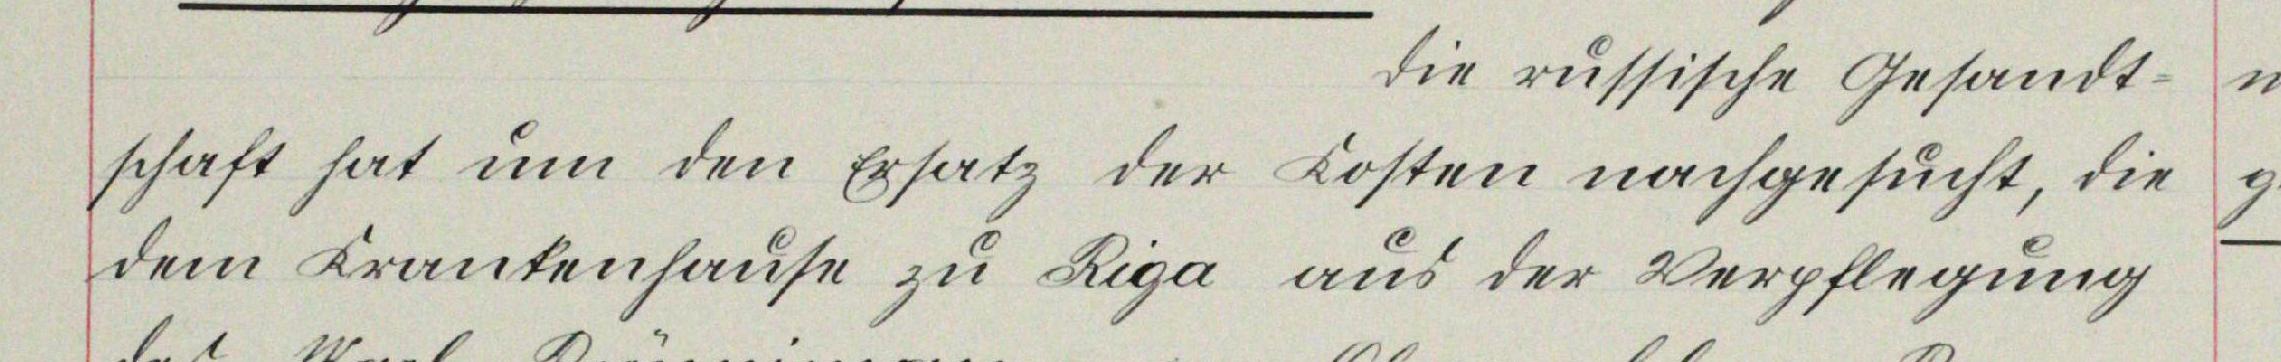 die russische Gesandt-
schaft hat um den Ersatz der Kosten nachgesucht, die
dem Krankenhause zu Riga aus der Verpflegung
des Karl